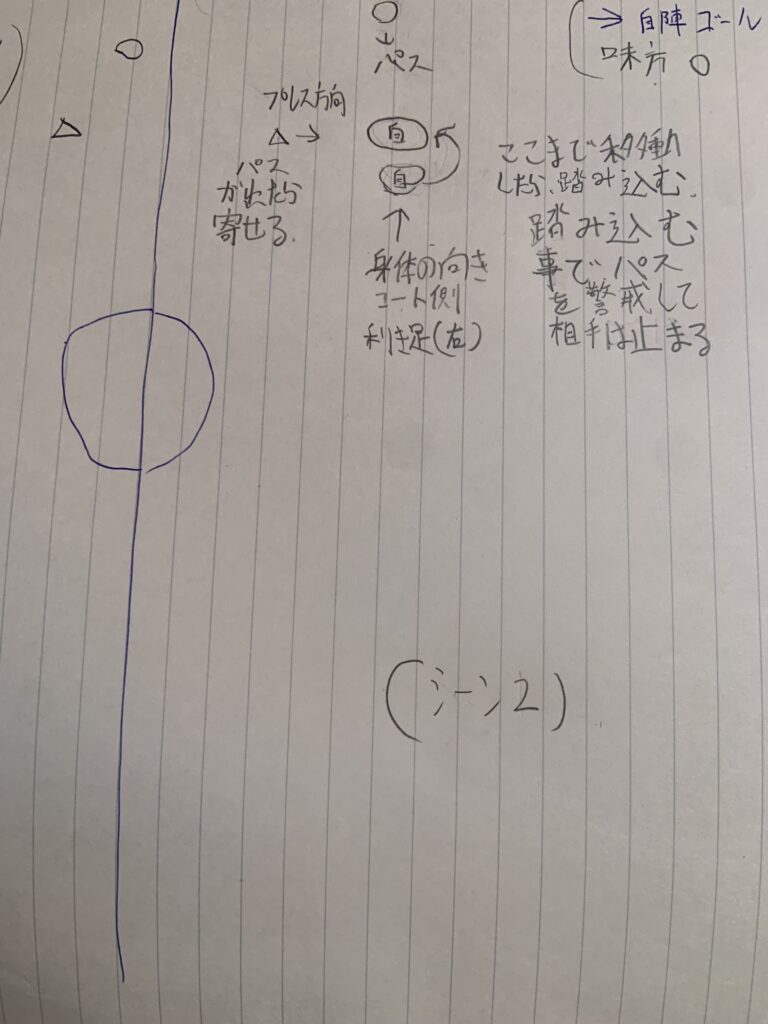 → 自陣 ゴール
味方 ○
パス
プレス方向
自
自
パス
が出たら
寄せる.
ここまで移動
したら、踏み込む.
踏み込む
事でパス
を警戒して
相手は止まる
身体の向き
コート側
利き足(右)
(シーン2)